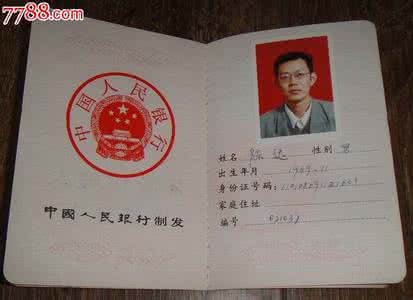 7788.com
中国人民银行
中國人民銀行制发
姓名 陈远 性别 男
出生年月 1969.11
身份证号码:
家庭住址
编号